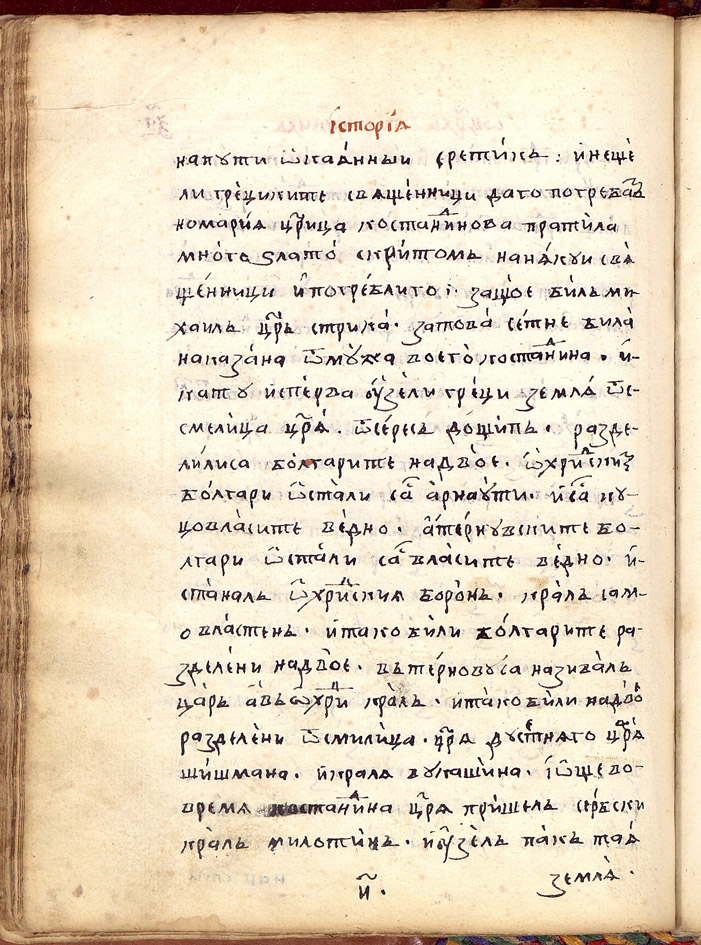 їсторїѧ
напути ѿкаѧнныи еретикь : и҆неще
ли грѐцики те свѧще́нници дато потребѧт
но марїѧ цр҃ица костан́динова пратила
мно́го злато̀ скри́томь на нѧкуи свѧ
ще́нници и҆потребли го ⁖ защо́е биль ми
хаиль цр҃ь стрика̀ · затова̀ се́тне била̀
наказа́на ѿ мꙋ́жа воего̀ костанди́на · и҆
като у҆ испе́рва оу҆зе́ли гре́ци землѧ̀ ѿс
смелица цр҃ѧ · ѿ се́ресь до щи́пь · разде
лили са бо́лгарите на дво́е · ѡ҆хри́дски
бо́лгари ѡ҆ста́ли са҆ с арнаꙋ́ти · и҆ са҆ с ку
цовла́сите ве́дно · а҆ терну́вските бо
лгари ѡ҆ста́ли са҆ с вла́сите ве́дно · и҆
ста́наль ѡ҆хри́дскиѧ боро́нь · кра́ль сам
о вла́стень · и҆тако би́ли бо́лгарите ра
зделе́ни на дво́е · вь терно́во у са нази́валь
ца́рь а҆ вь ѡ҆хри́д кра́ль · и҆тако би́ли на дво́
разделе́ни ѿ смили́ца · цр҃ѧ ду стнѧго цр҃ѧ
ши́шмана · и҆ кралѧ вукаши́на · ї҆ѡ҆ще во
времѧ костанди́на цр҃ѧ пришель се́рбски
кра́ль милоти́нь · и҆ оу҆зе́ль пакь таѧ
землѧ̀ ·
и҃ ·